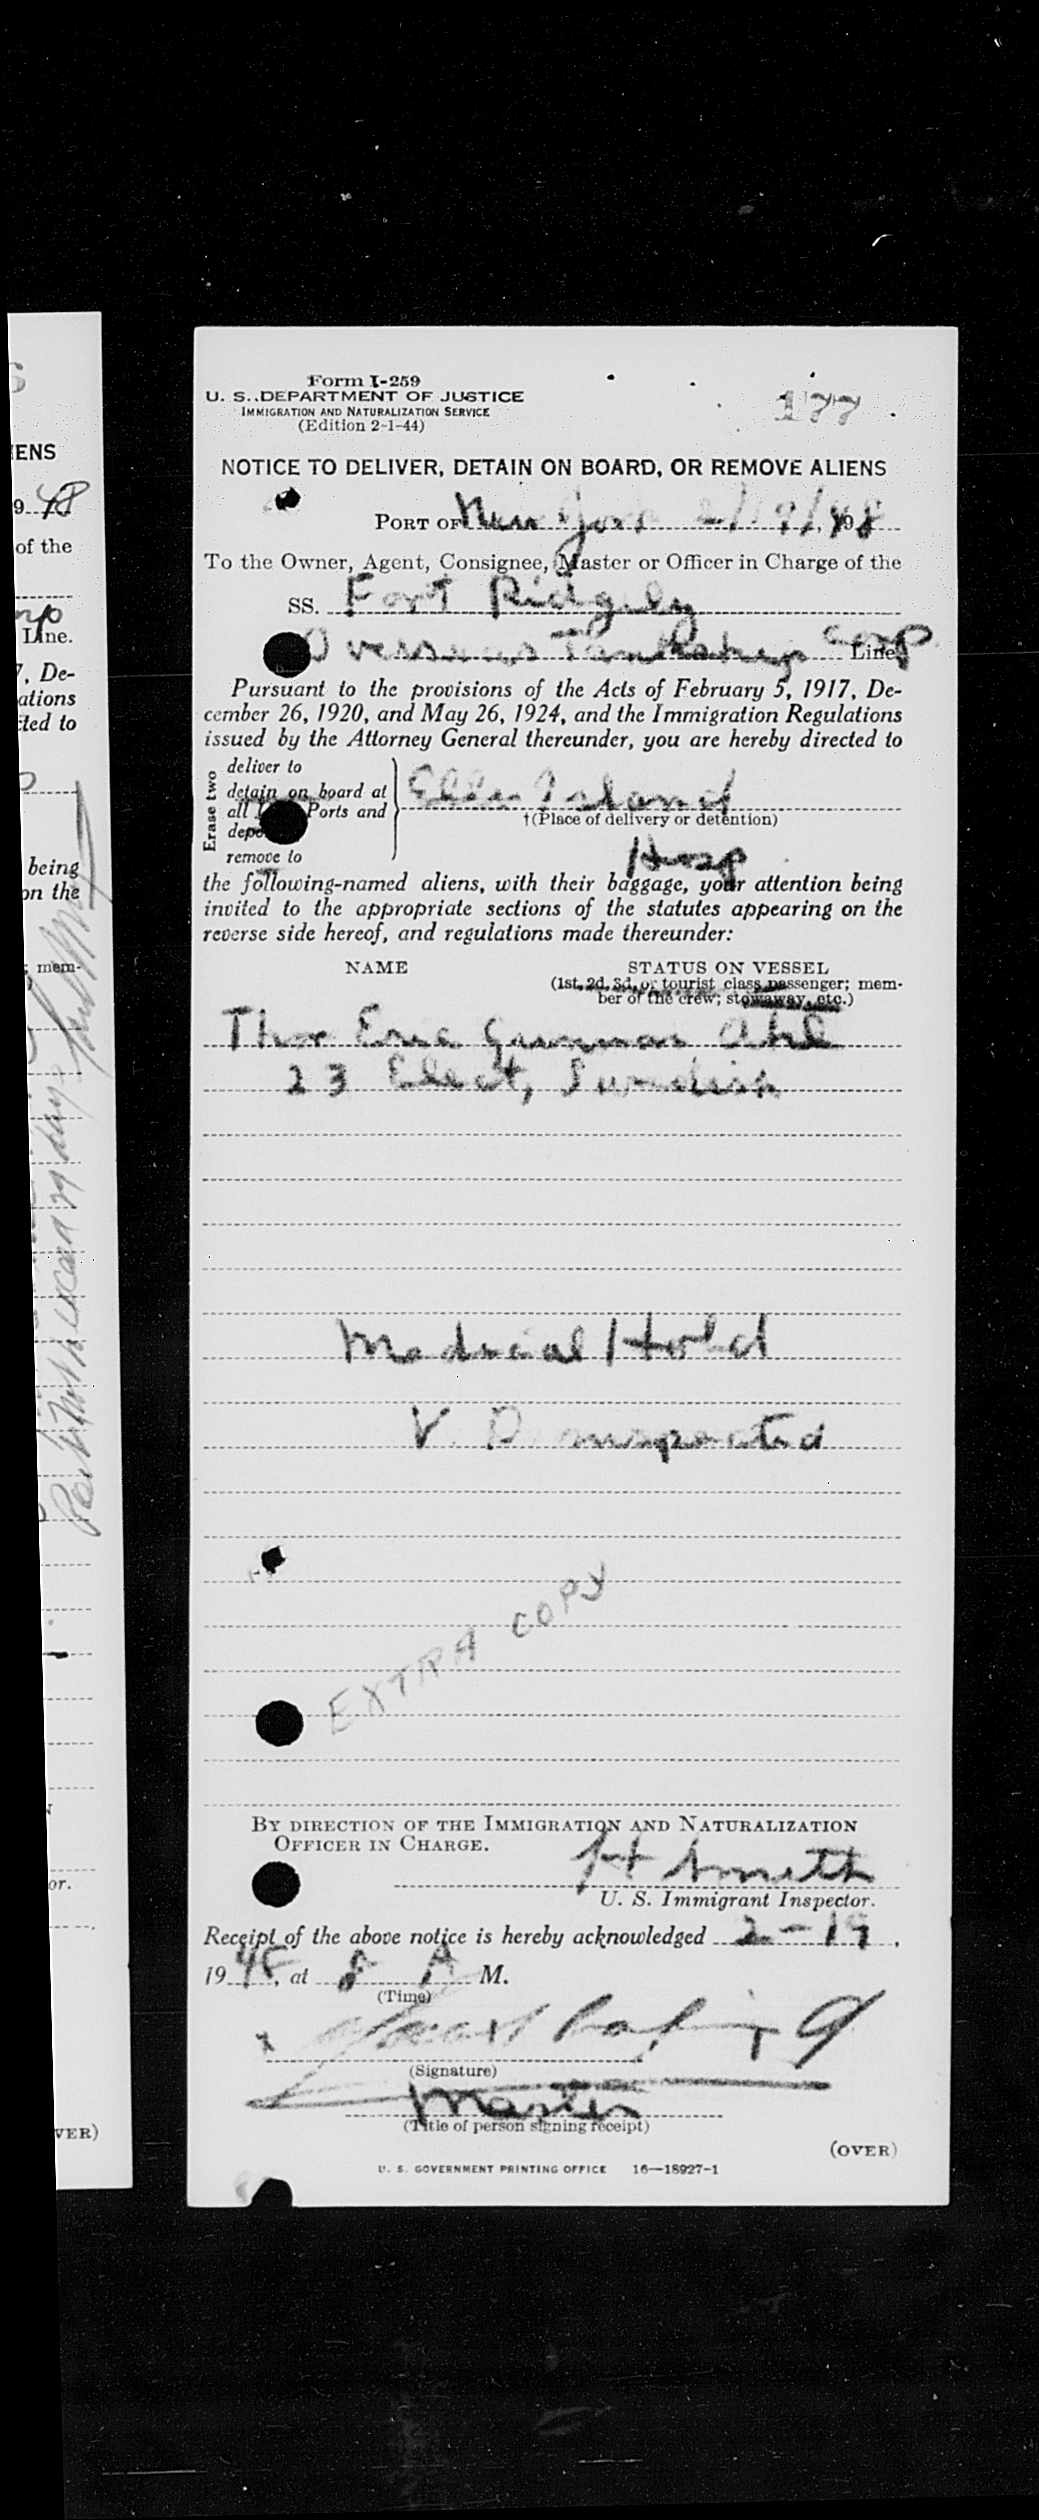 Form I-259
U. S. DEPARTMENT OF JUSTICE
IMMIGRATION AND NATURALIZATION SERVICE
(Edition 2-1-44)
177
NOTICE TO DELIVER, DETAIN ON BOARD, OR REMOVE ALIENS
PORT OF New York 2/19/1948
To the Owner, Agent, Consignee, Master or Officer in Charge of the
SS. Fort Ridgely
Overseas Tankship Corp Line.
Pursuant to the provisions of the Acts of February 5, 1917, De-
cember 26, 1920, and May 26, 1924, and the Immigration Regulations
issued by the Attorney General thereunder, you are hereby directed to
Erase two
deliver to
detain on board at
all Ports and
remove to
Ellis Island
†(Place of delivery or detention)
Hosp
the following-named aliens, with their baggage, your attention being
invited to the appropriate sections of the statutes appearing on the
reverse side hereof, and regulations made thereunder:
NAME STATUS ON VESSEL
(1st, 2d, 3d, or tourist class passenger; mem-
ber of the crew; stowaway, etc.)
Thor Eric Gunnar Ahl
23 Elect, Swedish
Medical Hold
V. D. suspected
EXTRA COPY
BY DIRECTION OF THE IMMIGRATION AND NATURALIZATION
OFFICER IN CHARGE.
H Smith
U. S. Immigrant Inspector.
Receipt of the above notice is hereby acknowledged 2-19,
1948, at 8 A M.
(Time)
x
(Signature)
Master
(Title of person signing receipt)
(OVER)
U. S. GOVERNMENT PRINTING OFFICE 16—18927-1
IENS
9 48
of the
Line.
7, De-
ations
cted to
being
on the
; mem-
or.
VER)